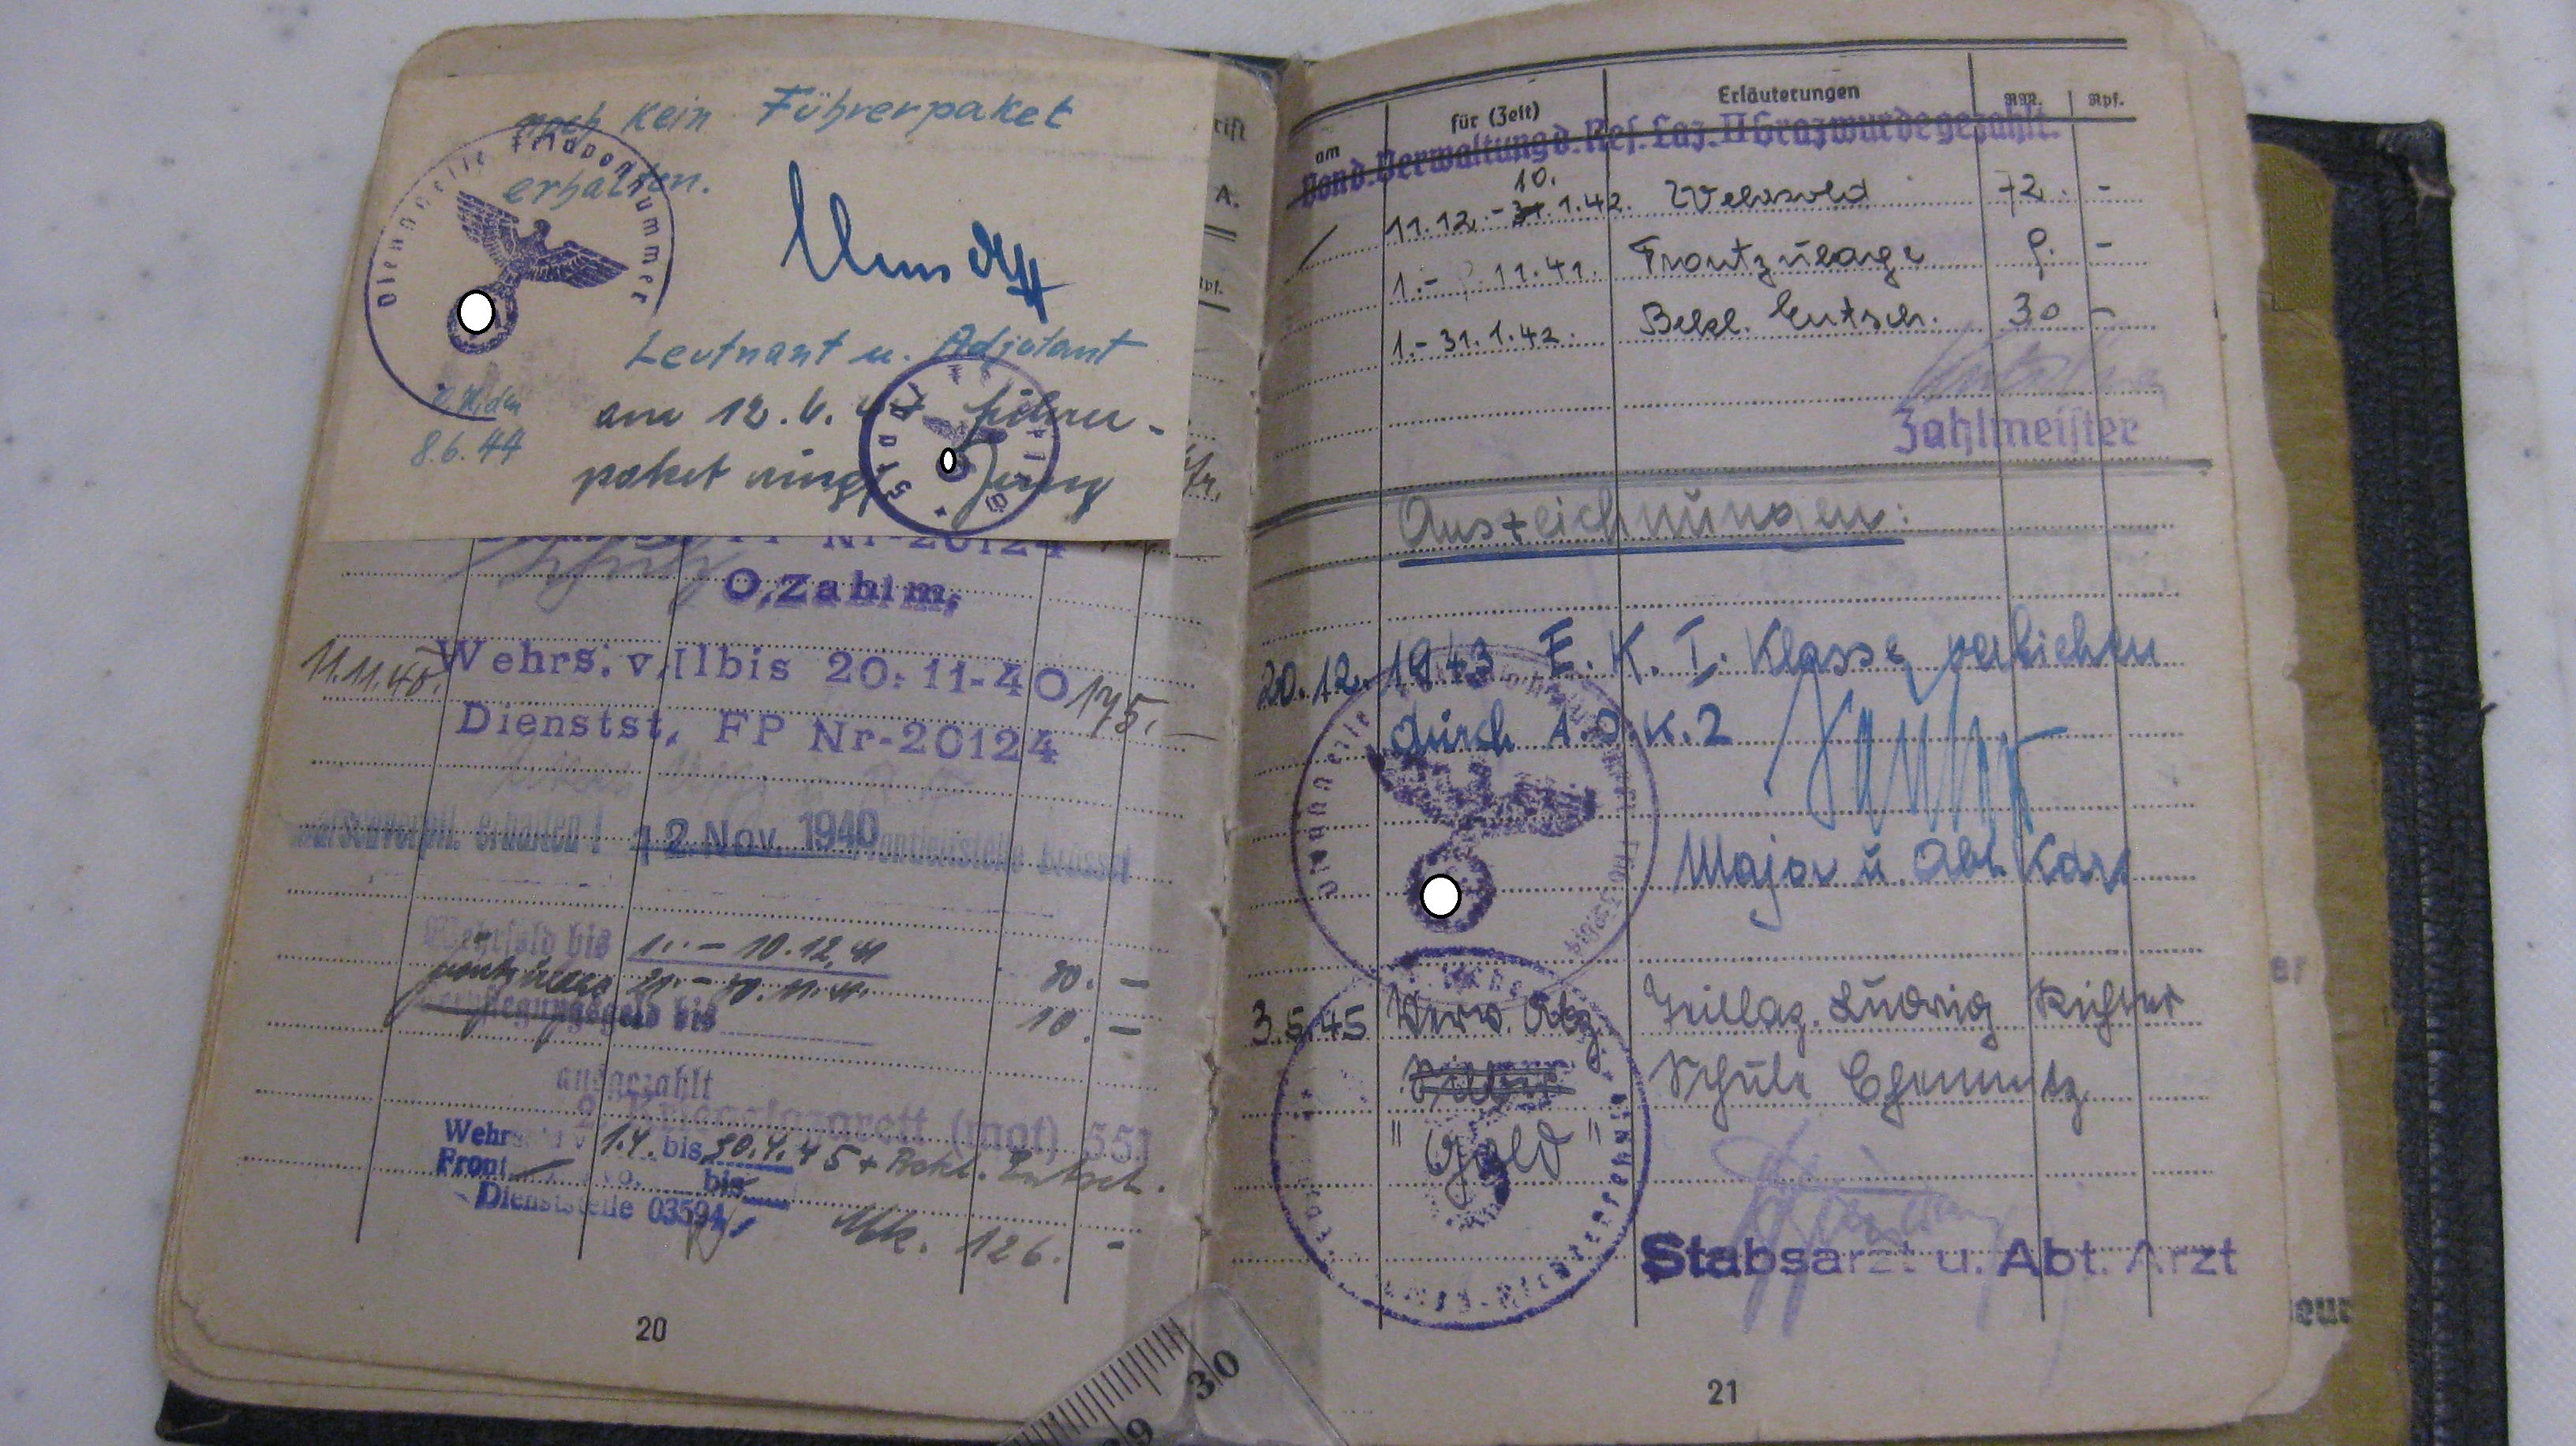 noch kein Führerpaket
erhalten.
Dienststelle Feldpostnummer
Leutnant u. Adjutant
8.6.44
am 12.6. Führer-
paket
FP Nr-20124
O.Zahlm.
11.11.40. Wehrs. v. 11bis 20. 11-40 175.-
Dienstst. FP Nr-20124
erhalten! 12. Nov. 1940
Wehrsold bis 1. - 10.12.41 80. -
Frontzulage 21. - 30.11.41. 10. -
Verpflegungsgeld bis
ausgezahlt
Kriegslazarett (mot) 551
Wehrs v 1.4. bis 30.4.45 + Bekl. Entsch.
Front bis
Dienststelle 03594
Mk. 126. -
20
am für (Zeit) Erläuterungen RM. Rpf.
Von d. Verwaltung d. Res. Laz. II Graz wurde gezahlt.
10.
11.12. - 31.1.42. Wehrsold 72. -
1. - 11.41. Frontzulage 9. -
1. - 31.1.42. Bekl. Entsch. 30 -
Zahlmeister
Auszeichnungen:
20.12.1943 E. K. I. Klasse verliehen
durch A.O.K.2
Major u. Abt. Kdr.
3.5.45 Verw. Abz. Teillaz. Ludwig Richter
Silber Schule Chemnitz
"Gold"
Stabsarzt u. Abt. Arzt
21
30